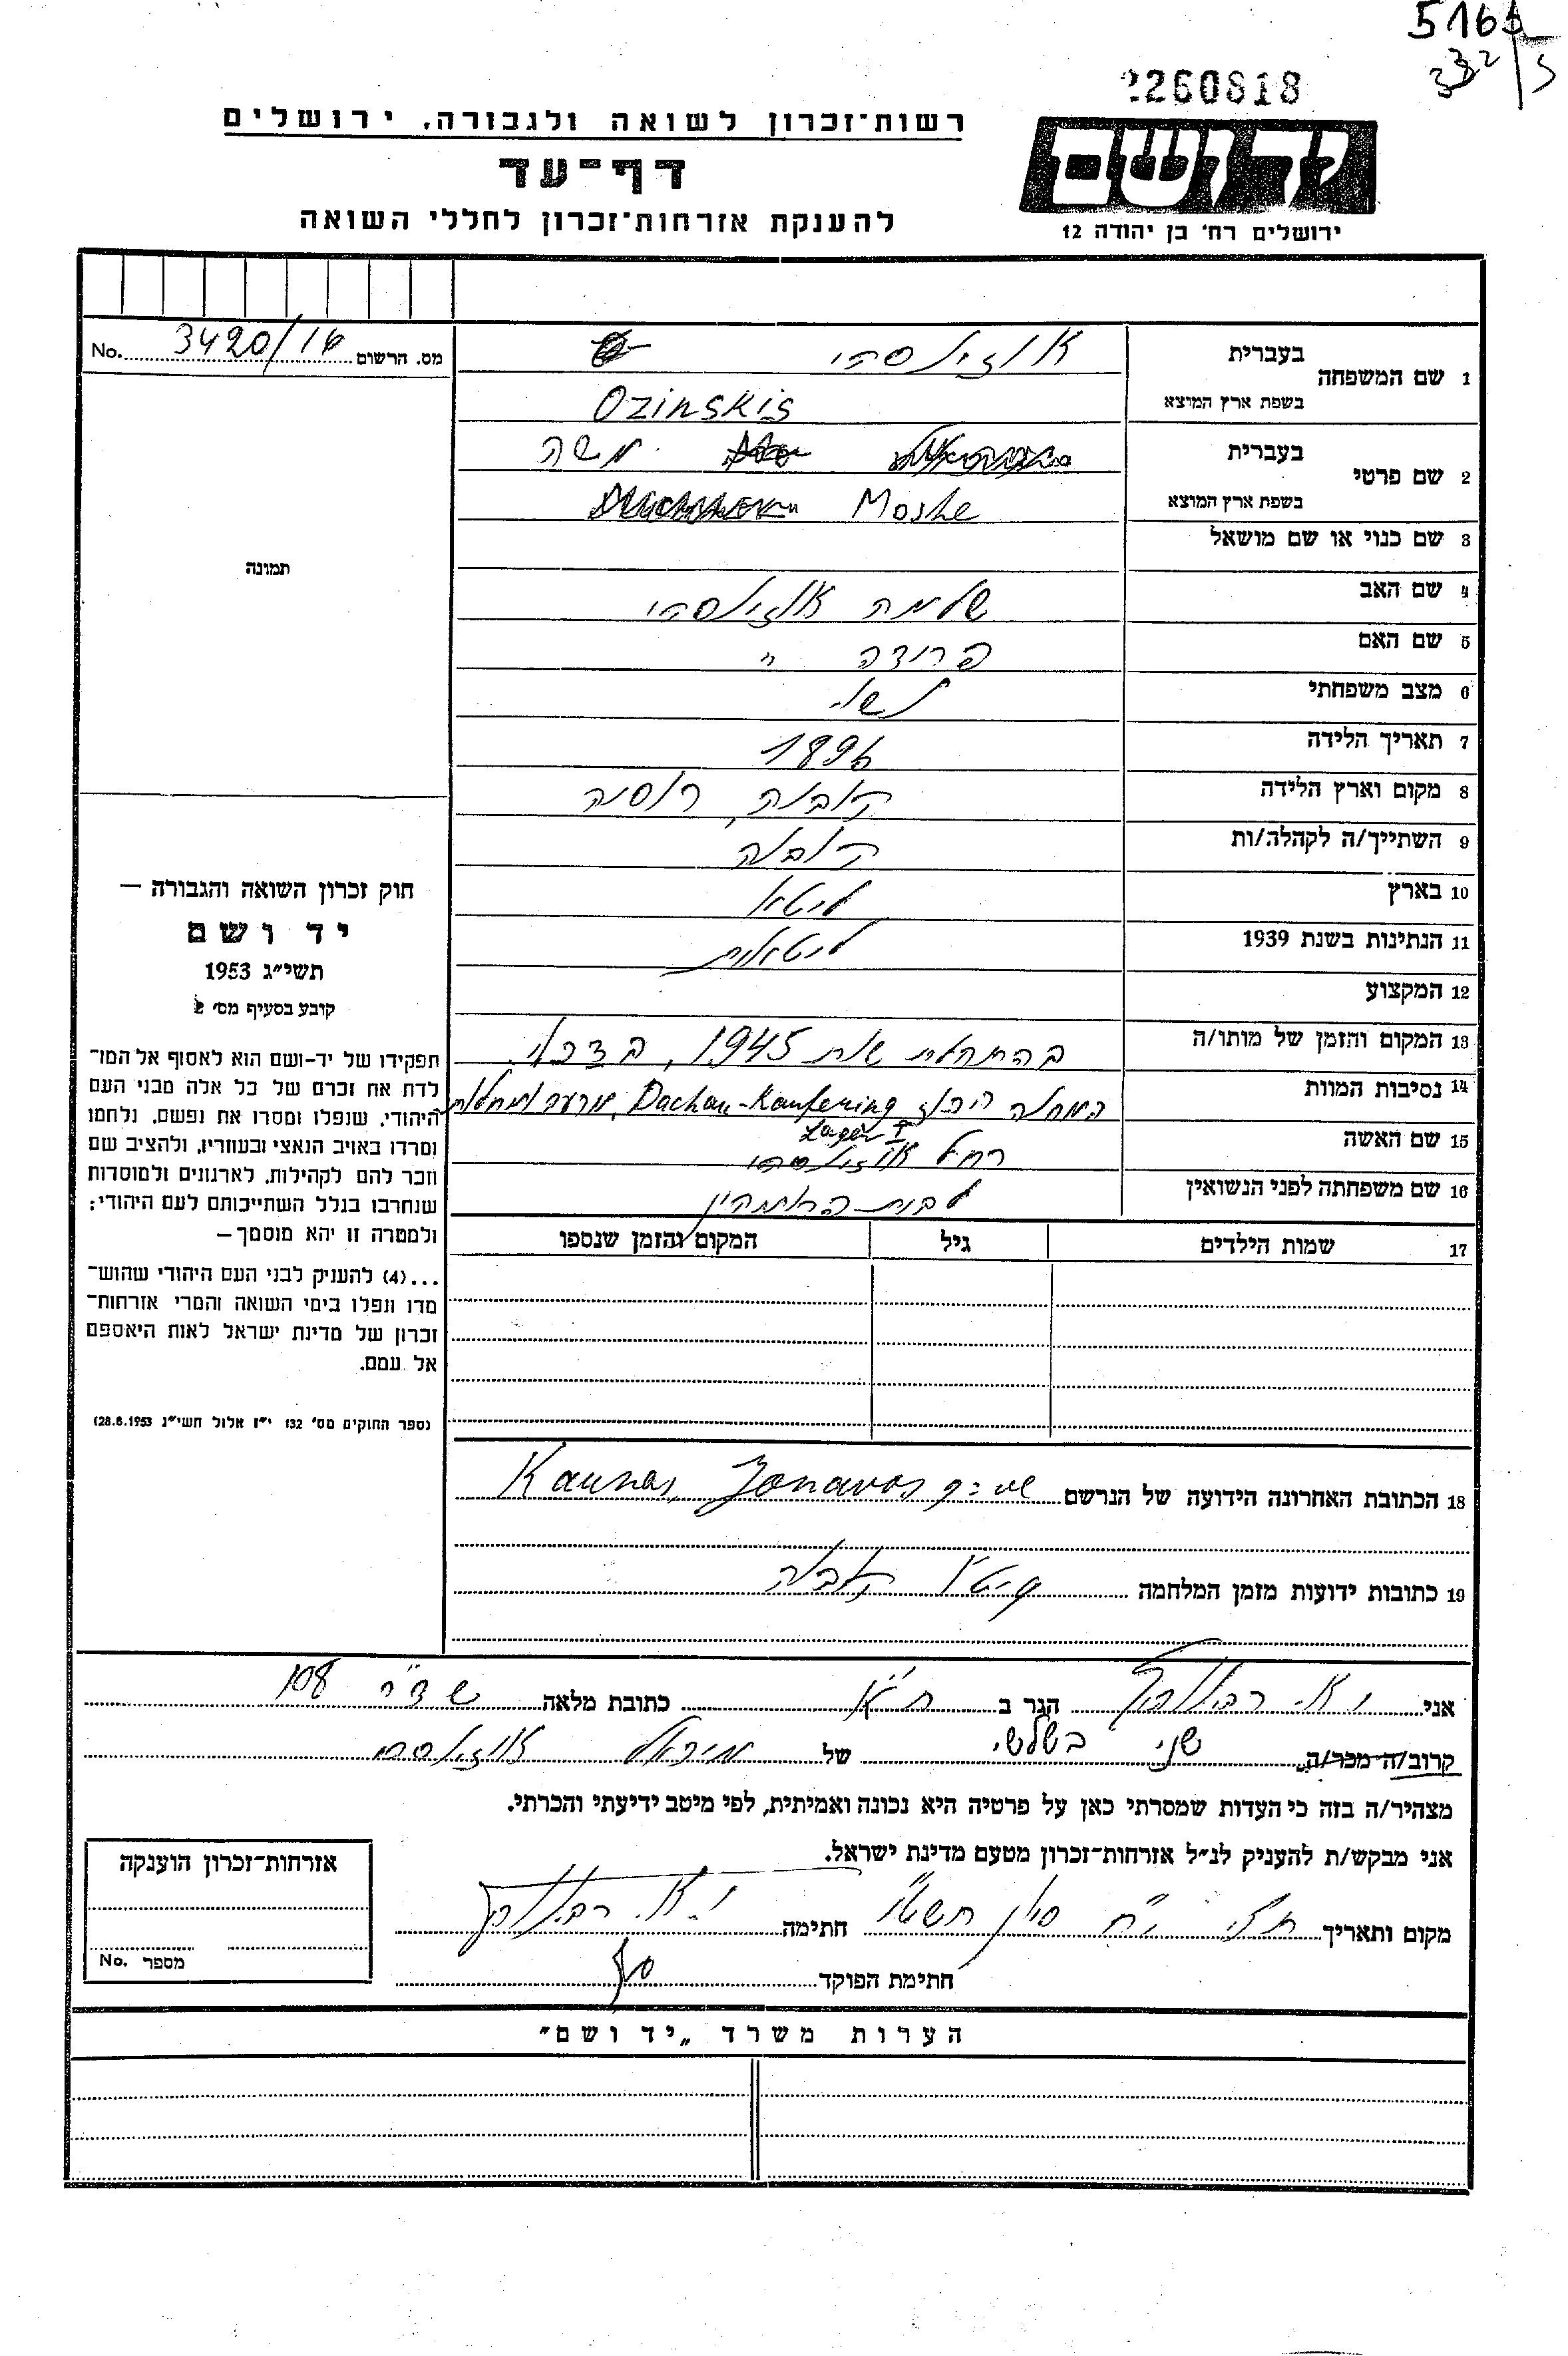 5165
332/5
2260818
רשות־זכרון לשואה ולגבורה, ירושלים
דף־עד
להענקת אזרחות־זכרון לחללי השואה
יד ושם
ירושלים רח' בן יהודה 12
מס. הרשום 3420/16 No.
1 שם המשפחה
בעברית אוזינסקי
בשפת ארץ המוצא Ozinskis
2 שם פרטי
בעברית משה
בשפת ארץ המוצא Moshe
3 שם כנוי או שם מושאל
4 שם האב שלמה אוזינסקי
5 שם האם פרידה "
6 מצב משפחתי נשוי
7 תאריך הלידה
8 מקום וארץ הלידה קובנה, רוסיה
9 השתייך/ה לקהלה/ות קובנה
10 בארץ ליטא
11 הנתינות בשנת 1939 ליטאית
12 המקצוע
13 המקום והזמן של מותו/ה בהתחלת שנת 1945, בדכאו
14 נסיבות המוות במחנה Dachau-Kaufering, מרעב ומחלות
Lager I
15 שם האשה רחל אוזינסקי
16 שם משפחתה לפני הנשואין לבית
17 שמות הילדים גיל המקום והזמן שנספו
18 הכתובת האחרונה הידועה של הנרשם Kaunas, Jonavos
19 כתובות ידועות מזמן המלחמה גיטו קובנה
תמונה
חוק זכרון השואה והגבורה —
יד ושם
תשי"ג 1953
קובע בסעיף מס' 2
תפקידו של יד-ושם הוא לאסוף אל המו־
לדת את זכרם של כל אלה מבני העם
היהודי, שנפלו ומסרו את נפשם, נלחמו
ומרדו באויב הנאצי ובעוזריו, ולהציב שם
וזכר להם לקהילות, לארגונים ולמוסדות
שנחרבו בגלל השתייכותם לעם היהודי;
ולמטרה זו יהא מוסמך—
...(4) להעניק לבני העם היהודי שהוש־
מדו ונפלו בימי השואה והמרי אזרחות־
זכרון של מדינת ישראל לאות היאספם
אל עמם.
(ספר החוקים מס' 132 י"ז אלול תשי"ג 28.8.1953)
אני הגר ב ת"א כתובת מלאה שד' 108
קרוב/ה מכר/ה שני בשלישי של מיכאל אוזינסקי
מצהיר/ה בזה כי העדות שמסרתי כאן על פרטיה היא נכונה ואמיתית, לפי מיטב ידיעתי והכרתי.
אני מבקש/ת להעניק לנ"ל אזרחות־זכרון מטעם מדינת ישראל.
מקום ותאריך סיון חתימה
חתימת הפוקד
אזרחות־זכרון הוענקה
מספר No.
הערות משרד „יד ושם"